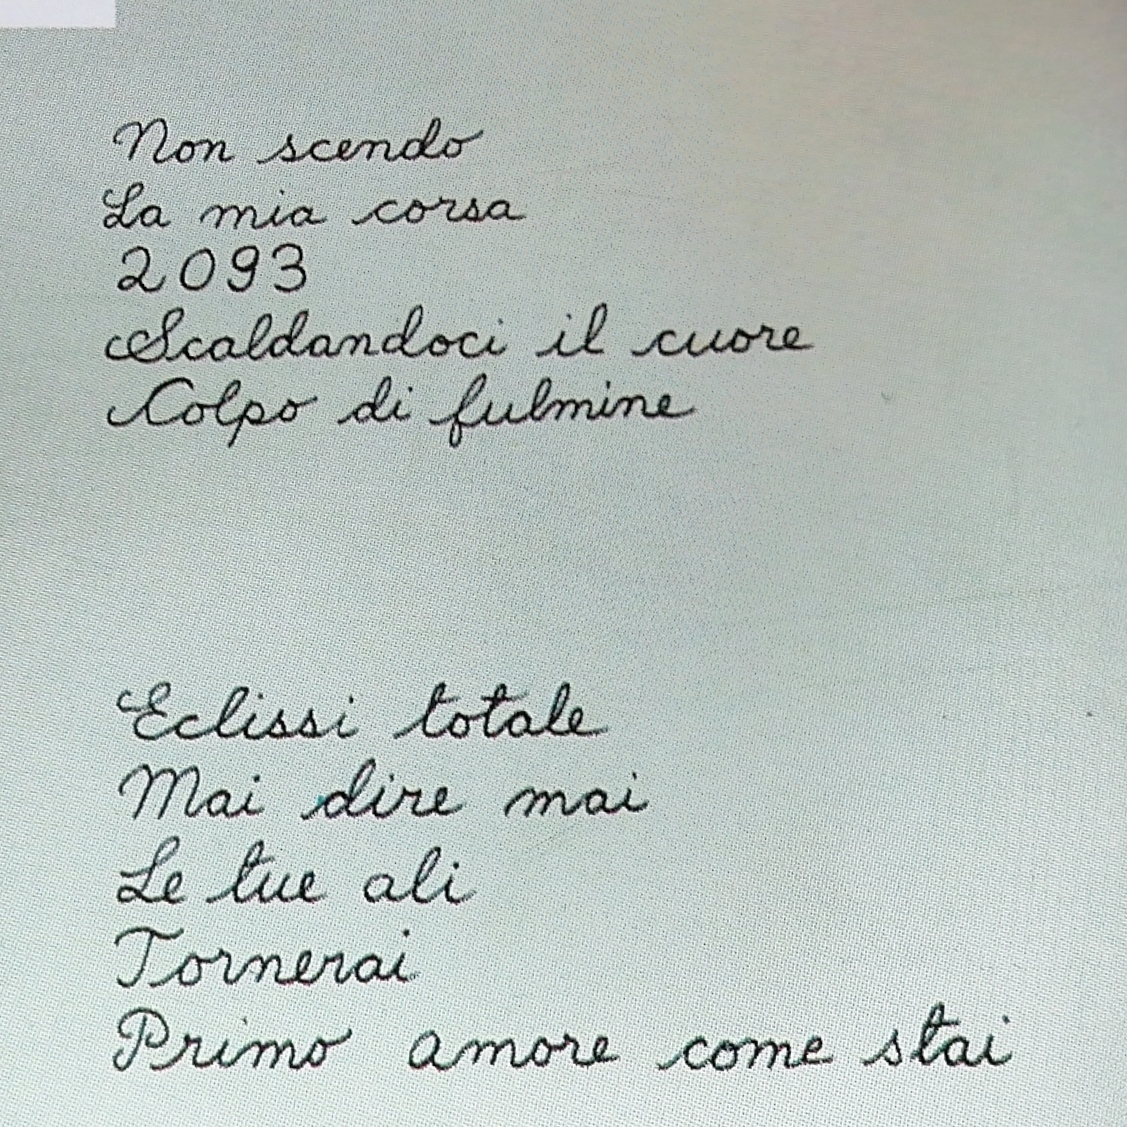 Non scendo
La mia corsa
2093
Scaldandoci il cuore
Colpo di fulmine
Eclissi totale
Mai dire mai
Le tue ali
Tornerai
Primo amore come stai